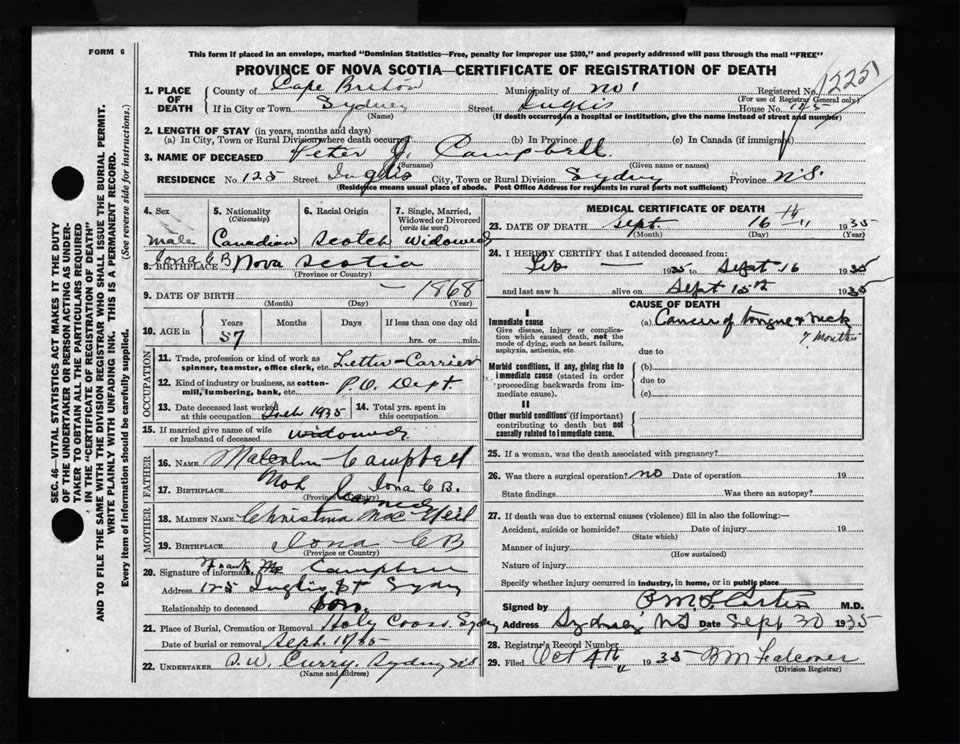 FORM 6
This form if placed in an envelope, marked "Dominion Statistics—Free, penalty for improper use $300," and properly addressed will pass through the mail "FREE"
PROVINCE OF NOVA SCOTIA—CERTIFICATE OF REGISTRATION OF DEATH
1225
1. PLACE OF DEATH
County of Cape Breton Municipality of No 1 Registered No.
(For use of Registrar General only)
If in City or Town Sydney Street Inglis House No. 125
(Name) (If death occurred in a hospital or institution, give the name instead of street and number)
2. LENGTH OF STAY (in years, months and days)
(a) In City, Town or Rural Division where death occurred (b) In Province (c) In Canada (if immigrant)
3. NAME OF DECEASED Peter J. Campbell
(Surname) (Given name or names)
RESIDENCE No. 125 Street Inglis City, Town or Rural Division Sydney Province N.S.
(Residence means usual place of abode. Post Office Address for residents in rural parts not sufficient)
4. Sex 5. Nationality 6. Racial Origin 7. Single, Married, Widowed or Divorced
(Citizenship) (write the word)
Male Canadian Scotch Widowed
Iona C B
8. BIRTHPLACE Nova Scotia
(Province or Country)
9. DATE OF BIRTH — 1868
(Month) (Day) (Year)
10. AGE in Years Months Days If less than one day old
57 hrs. or min.
OCCUPATION
11. Trade, profession or kind of work as spinner, teamster, office clerk, etc. Letter-Carrier
12. Kind of industry or business, as cotton-mill, lumbering, bank, etc. P.O. Dept
13. Date deceased last worked at this occupation 1935
14. Total yrs. spent in this occupation
15. If married give name of wife or husband of deceased widowed
FATHER
16. NAME Malcolm Campbell
17. BIRTHPLACE Iona C B.
(Province or Country)
MOTHER
18. MAIDEN NAME Christina Mac Neil
19. BIRTHPLACE Iona C B
(Province or Country)
20. Signature of informant Frank Campbell
Address 125 Inglis St Sydney
Relationship to deceased son
21. Place of Burial, Cremation or Removal Holy Cross. Sydney
Date of burial or removal Sept.
22. UNDERTAKER D. W. Curry. Sydney N S
(Name and address)
MEDICAL CERTIFICATE OF DEATH
23. DATE OF DEATH Sept. 16 1935
(Month) (Day) (Year)
24. I HEREBY CERTIFY that I attended deceased from:
Feb — 1935 to Sept 16 1935
and last saw h alive on Sept 15th 1935
CAUSE OF DEATH
I
Immediate cause
Give disease, injury or complication which caused death, not the mode of dying, such as heart failure, asphyxia, asthenia, etc.
(a) Cancer of tongue & neck
7 months
due to
Morbid conditions, if any, giving rise to immediate cause (stated in order proceeding backwards from immediate cause).
(b)
due to
(c)
II
Other morbid conditions (if important) contributing to death but not causally related to immediate cause.
25. If a woman, was the death associated with pregnancy?
26. Was there a surgical operation? no Date of operation 19
State findings Was there an autopsy?
27. If death was due to external causes (violence) fill in also the following:—
Accident, suicide or homicide? Date of injury 19
(State which)
Manner of injury
(How sustained)
Nature of injury
Specify whether injury occurred in industry, in home, or in public place
Signed by M.D.
Address Sydney, NS Date Sept 30 1935
28. Registrar's Record Number
29. Filed Oct 4th 1935 B M Falconer
(Division Registrar)
SEC. 46—VITAL STATISTICS ACT MAKES IT THE DUTY
OF THE UNDERTAKER OR PERSON ACTING AS UNDER-
TAKER TO OBTAIN ALL THE PARTICULARS REQUIRED
IN THE "CERTIFICATE OF REGISTRATION OF DEATH"
AND TO FILE THE SAME WITH THE DIVISION REGISTRAR WHO SHALL ISSUE THE BURIAL PERMIT.
WRITE PLAINLY WITH UNFADING INK. THIS IS A PERMANENT RECORD.
Every item of information should be carefully supplied. (See reverse side for instructions.)